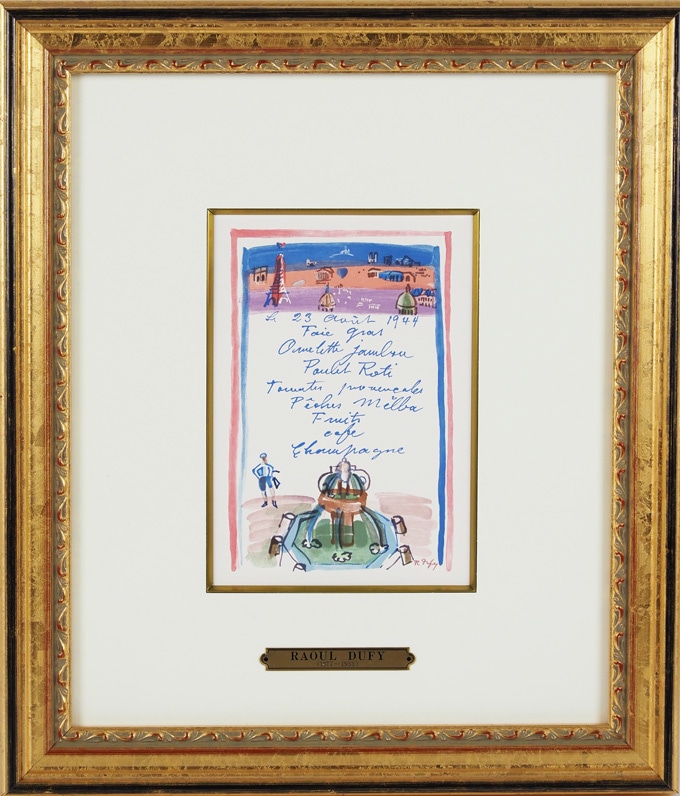 Le 23 Août 1944
Foie gras
Omelette jambon
Poulet Roti
Tomates provençales
Pêches Melba
Fruits
café
Champagne
R. Dufy
RAOUL DUFY